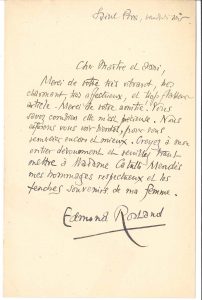 Cher Maître et Ami,
Merci de votre très vibrant, très
clairvoyant, très affectueux, et
article. Merci de votre amitié. Vous
savez combien elle m'est précieuse. Nous
espérons vous voir bientôt, pour vous
remercier encore et mieux. Croyez à mon
entier dévouement et veuillez
mettre à Madame Catulle Mendès
mes hommages respectueux et les
tendres souvenirs de ma femme.
Edmond Rostand